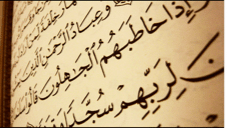 وَعِبَادُ ٱلرَّحْمَٰنِ ٱلَّذِينَ
وَإِذَا خَاطَبَهُمُ ٱلْجَٰهِلُونَ قَالُوا
لِرَبِّهِمْ سُجَّدًا